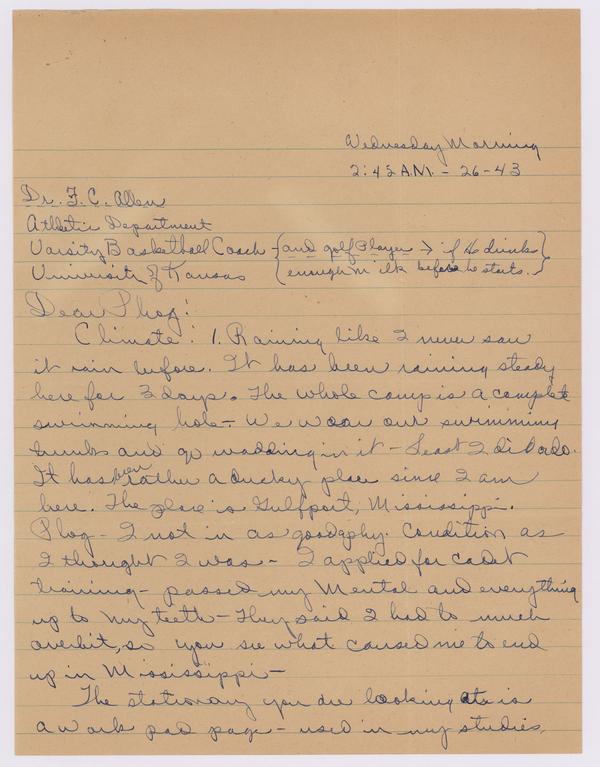 Wednesday Morning
2:42 A.M. - 26-43
Dr. F. C. Allen
Athletic Department
Varsity Basketball Coach - {and golf Player → if He drinks}
University of Kansas {enough milk before he starts.}
Dear Phog:
Climate: 1. Raining like I never saw
it rain before. It has been raining steady
here for 3 days. The whole camp is a complete
swimming hole - We wear our swimming
trunks and go wadding in it - Least I did
It has been rather a ducky place since I am
here. The place is Gulfport, Mississippi.
Phog - I not in as good phy. condition as
I thought I was - I applied for cadet
training - passed my Mental and everything
up to my teeth - They said I had to much
overbit, so you see what caused me to end
up in Mississippi -
The stationary you are looking at is
a work pad page - used in my studies.